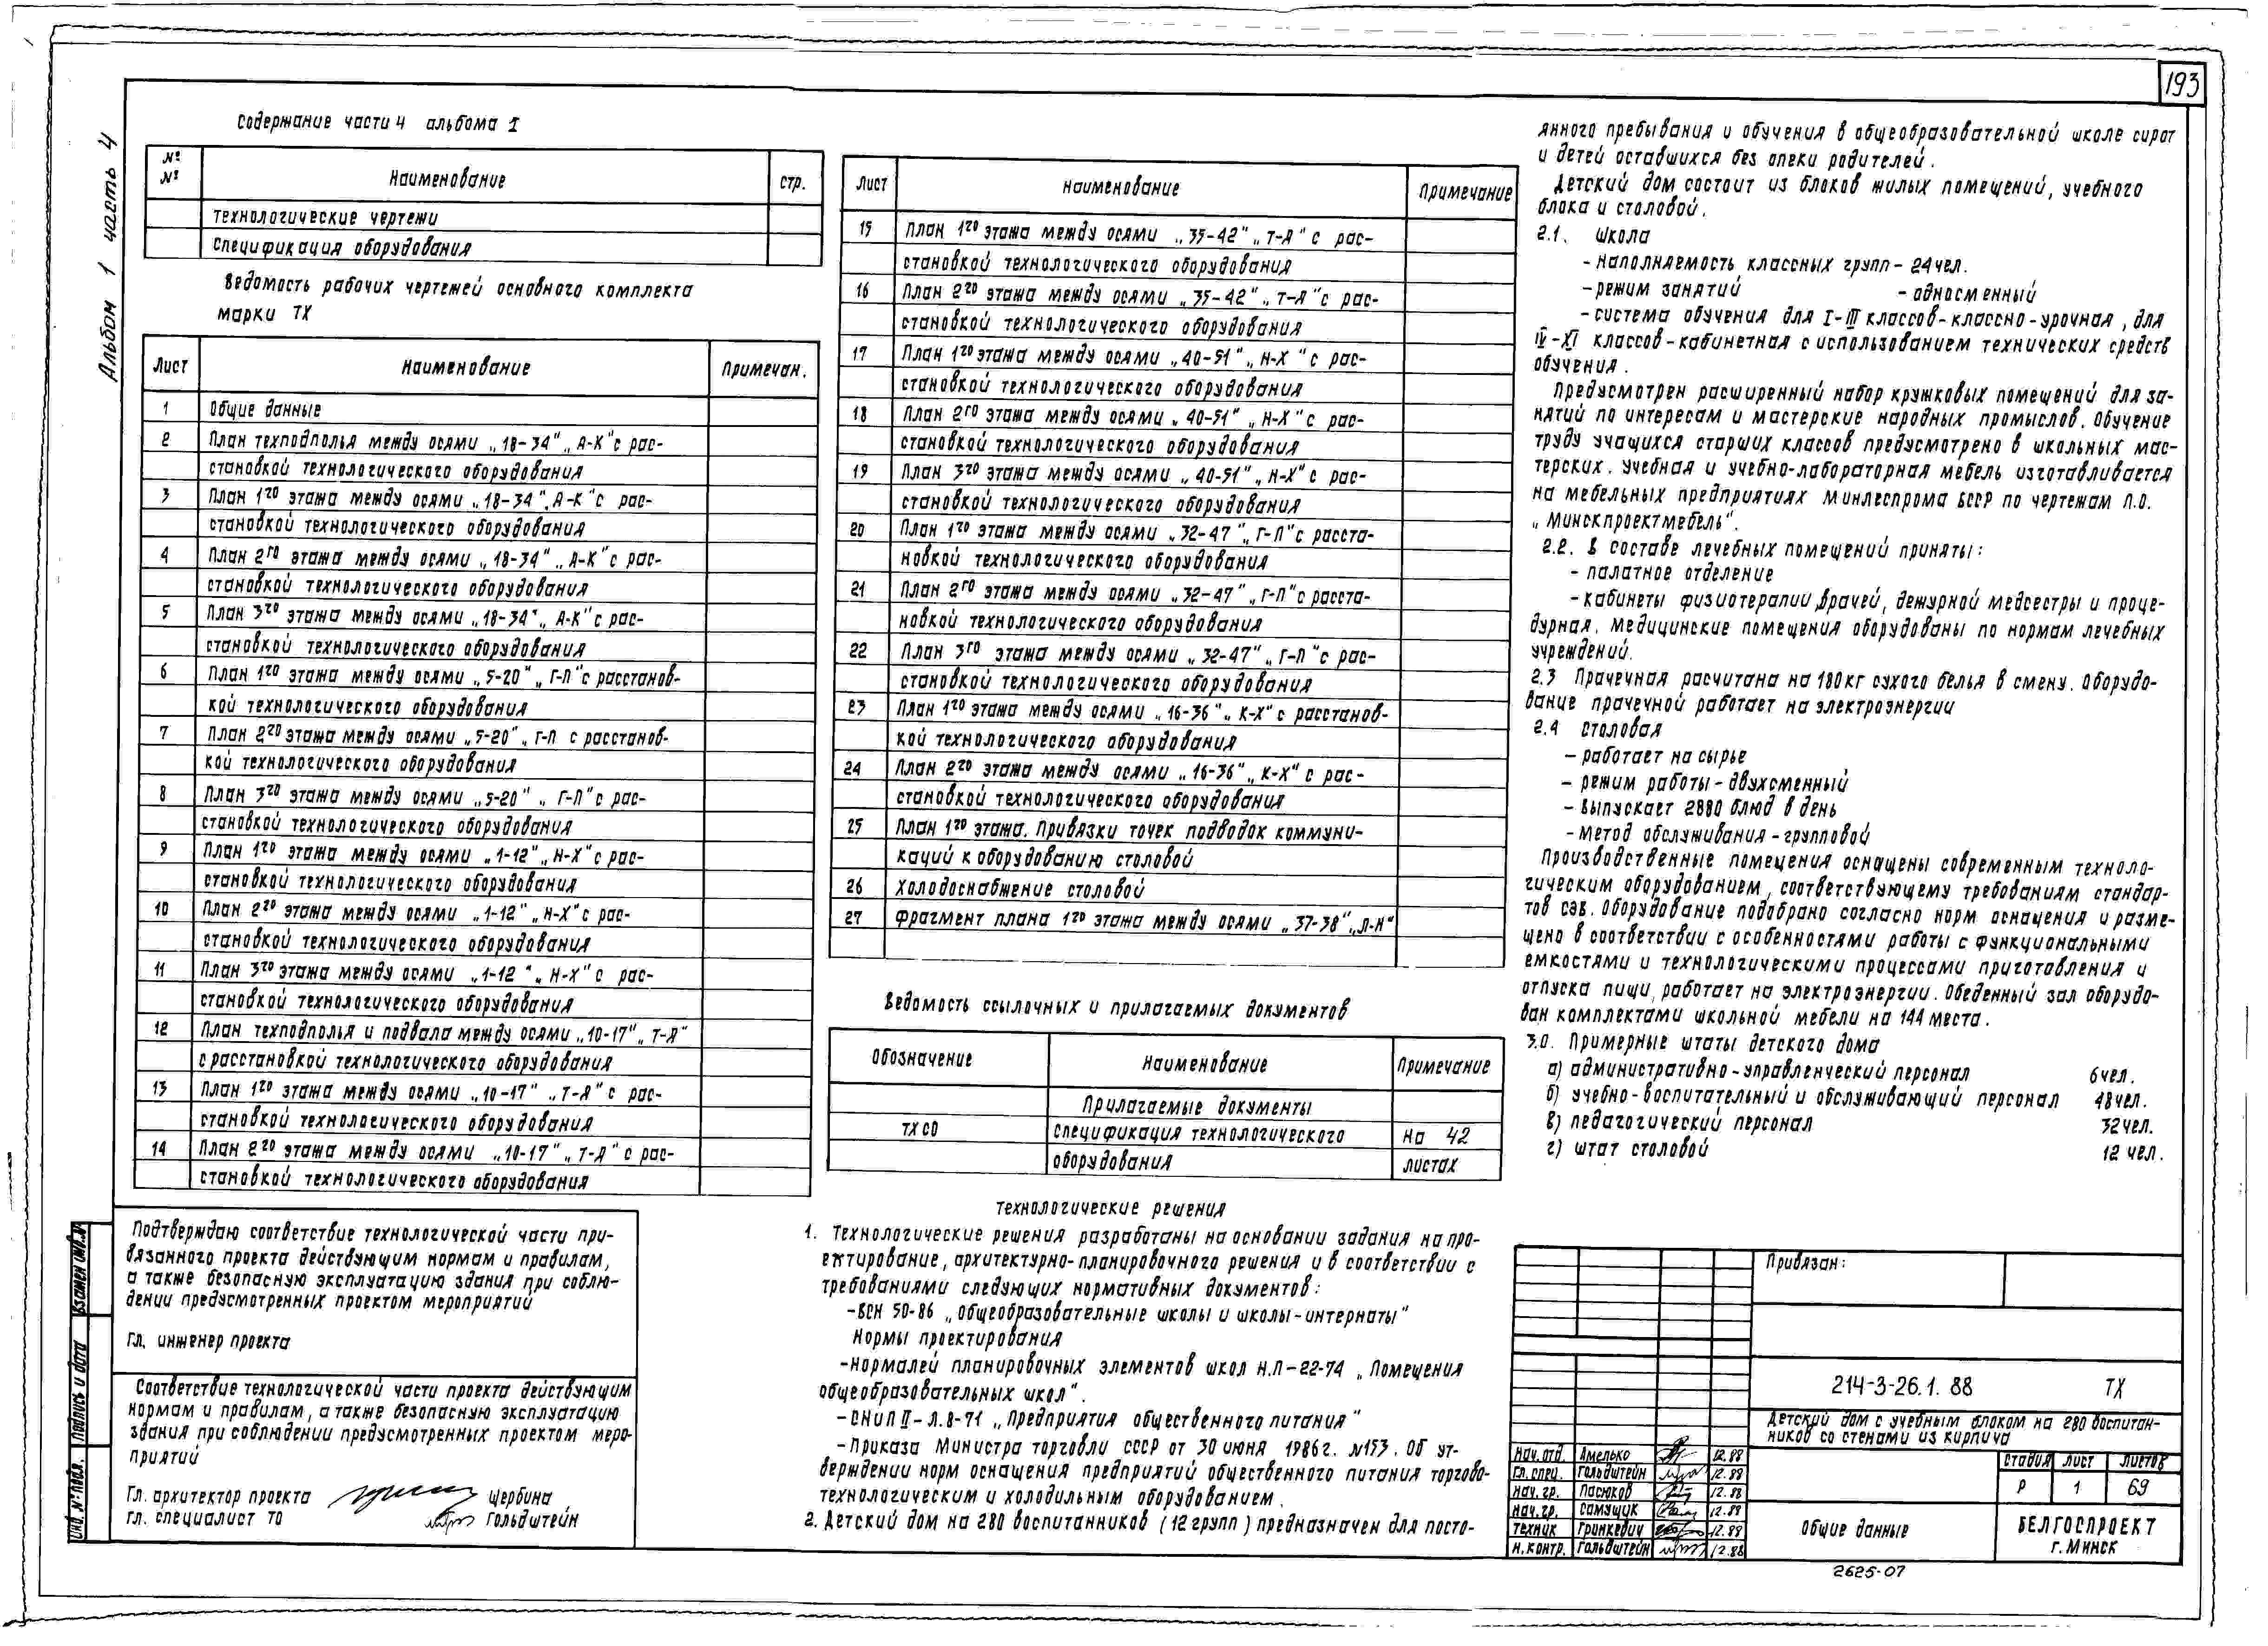 193
Альбом 1 часть 4
Содержание части 4 альбома I
№ №
Наименование
стр.
Технологические чертежи
Спецификация оборудования
Ведомость рабочих чертежей основного комплекта
марки ТХ
Лист
Наименование
Примечан.
1 Общие данные
2 План техподполья между осями „18-34" „А-К" с рас-
становкой технологического оборудования
3 План 1го этажа между осями „18-34", А-К" с рас-
становкой технологического оборудования
4 План 2го этажа между осями „18-34" „А-К" с рас-
становкой технологического оборудования
5 План 3го этажа между осями „18-34" „А-К" с рас-
становкой технологического оборудования
6 План 1го этажа между осями „5-20" „Г-П" с расстанов-
кой технологического оборудования
7 План 2го этажа между осями „5-20" „Г-П с расстанов-
кой технологического оборудования
8 План 3го этажа между осями „5-20" „Г-П" с рас-
становкой технологического оборудования
9 План 1го этажа между осями „1-12" „Н-Х" с рас-
становкой технологического оборудования
10 План 2го этажа между осями „1-12" „Н-Х" с рас-
становкой технологического оборудования
11 План 3го этажа между осями „1-12" „Н-Х" с рас-
становкой технологического оборудования
12 План техподполья и подвала между осями „10-17" „Т-Я"
с расстановкой технологического оборудования
13 План 1го этажа между осями „10-17" „Т-Я" с рас-
становкой технологического оборудования
14 План 2го этажа между осями „10-17" „Т-Я" с рас-
становкой технологического оборудования
Лист
Наименование
Примечание
15 План 1го этажа между осями „35-42" „Т-Я" с рас-
становкой технологического оборудования
16 План 2го этажа между осями „35-42" „Т-Я" с рас-
становкой технологического оборудования
17 План 1го этажа между осями „40-51" „Н-Х" с рас-
становкой технологического оборудования
18 План 2го этажа между осями „40-51" „Н-Х" с рас-
становкой технологического оборудования
19 План 3го этажа между осями „40-51" „Н-Х" с рас-
становкой технологического оборудования
20 План 1го этажа между осями „32-47" „Г-П" с расста-
новкой технологического оборудования
21 План 2го этажа между осями „32-47" „Г-П" с расста-
новкой технологического оборудования
22 План 3го этажа между осями „32-47" „Г-П" с рас-
становкой технологического оборудования
23 План 1го этажа между осями „16-36" „К-Х" с расстанов-
кой технологического оборудования
24 План 2го этажа между осями „16-36" „К-Х" с рас-
становкой технологического оборудования
25 План 1го этажа. Привязки точек подводок коммуни-
каций к оборудованию столовой
26 Холодоснабжение столовой
27 Фрагмент плана 1го этажа между осями „37-38" „Л-Н"
Ведомость ссылочных и прилагаемых документов
Обозначение
Наименование
Примечание
Прилагаемые документы
ТХ СО Спецификация технологического на 42
оборудования листах
Технологические решения
1. Технологические решения разработаны на основании задания на про-
ектирование, архитектурно-планировочного решения и в соответствии с
требованиями следующих нормативных документов:
-ВСН 50-86 „Общеобразовательные школы и школы-интернаты"
Нормы проектирования
-Нормалей планировочных элементов школ Н.П-22-74 „Помещения
общеобразовательных школ".
-СНиП II-Л.8-71 „Предприятия общественного питания"
-Приказа Министра торговли СССР от 30 июня 1986г. №153. Об ут-
верждении норм оснащения предприятий общественного питания торгово-
технологическим и холодильным оборудованием.
2. Детский дом на 280 воспитанников (12 групп) предназначен для посто-
янного пребывания и обучения в общеобразовательной школе сирот
и детей оставшихся без опеки родителей.
Детский дом состоит из блоков жилых помещений, учебного
блока и столовой.
2.1. Школа
- наполняемость классных групп - 24чел.
- режим занятий - односменный
- система обучения для I-III классов-классно-урочная, для
IV-XI классов-кабинетная с использованием технических средств
обучения.
Предусмотрен расширенный набор кружковых помещений для за-
нятий по интересам и мастерские народных промыслов. Обучение
труду учащихся старших классов предусмотрено в школьных мас-
терских. Учебная и учебно-лабораторная мебель изготавливается
на мебельных предприятиях Минлеспрома БССР по чертежам П.О.
„Минскпроектмебель".
2.2. В составе лечебных помещений приняты:
- палатное отделение
- кабинеты физиотерапии, врачей, дежурной медсестры и проце-
дурная. Медицинские помещения оборудованы по нормам лечебных
учреждений.
2.3 Прачечная расчитана на 180кг сухого белья в смену. Оборудо-
вание прачечной работает на электроэнергии
2.4 Столовая
- работает на сырье
- режим работы - двухсменный
- выпускает 2880 блюд в день
- метод обслуживания - групповой
Производственные помещения оснащены современным техноло-
гическим оборудованием, соответствующему требованиям стандар-
тов СЭВ. Оборудование подобрано согласно норм оснащения и разме-
щено в соответствии с особенностями работы с функциональными
емкостями и технологическими процессами приготовления и
отпуска пищи, работает на электроэнергии. Обеденный зал оборудо-
ван комплектами школьной мебели на 144 места.
3.0. Примерные штаты детского дома
а) административно-управленческий персонал 6чел.
б) учебно-воспитательный и обслуживающий персонал 48чел.
в) педагогический персонал 32чел.
г) штат столовой 12 чел.
Подтверждаю соответствие технологической части при-
вязанного проекта действующим нормам и правилам,
а также безопасную эксплуатацию здания при соблю-
дении предусмотренных проектом мероприятий
Гл. инженер проекта
Соответствие технологической части проекта действующим
нормам и правилам, а также безопасную эксплуатацию
здания при соблюдении предусмотренных проектом меро-
приятий
Гл. архитектор проекта Щербина
Гл. специалист ТО Гольдштейн
Взамен инв.№
Подпись и дата
Инв. № подл.
Привязан:
214-3-26.1.88 ТХ
Детский дом с учебным блоком на 280 воспитан-
ников со стенами из кирпича
Нач. отд. Амелько 12.88
Гл. спец. Гольдштейн 12.88
Нач. гр. Пасюков 12.88
Нач. гр. Самущик 12.88
Техник Гринкевич 12.88
Н. контр. Гольдштейн 12.88
Стадия Лист Листов
Р 1 69
Общие данные
БЕЛГОСПРОЕКТ
г. Минск
2625-07